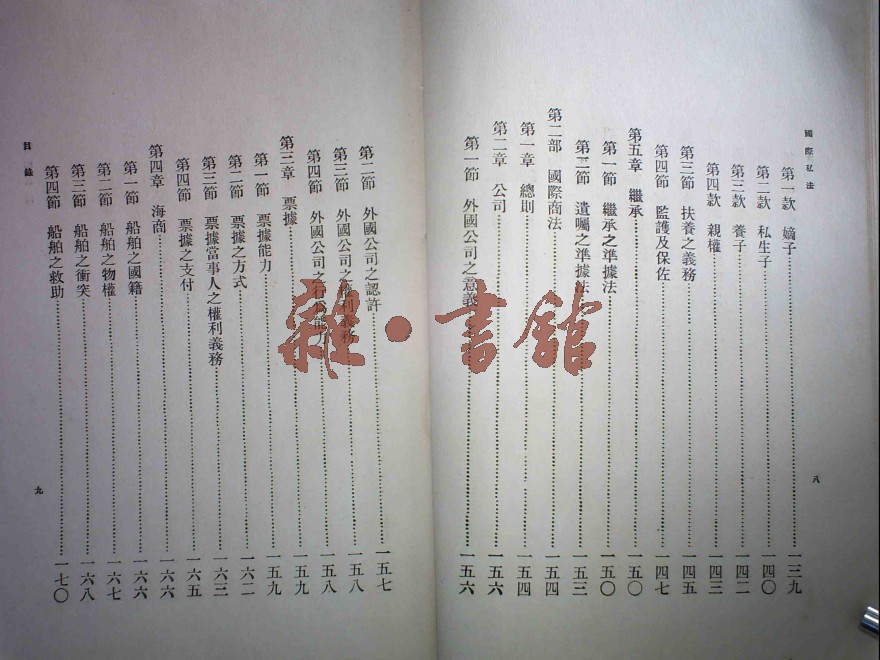 國際私法
第一款 嫡子 一三九
第二款 私生子 一四〇
第三款 養子 一四二
第四款 親權 一四三
第三節 扶養之義務 一四五
第四節 監護及保佐 一四七
第五章 繼承 一五〇
第一節 繼承之準據法 一五〇
第二節 遺囑之準據法 一五三
第二部 國際商法 一五四
第一章 總則 一五四
第二章 公司 一五六
第一節 外國公司之意義 一五六
八
第二節 外國公司之認許 一五七
第三節 外國公司之權利義務 一五八
第四節 外國公司之行為能力 一五九
第三章 票據 一五九
第一節 票據能力 一五九
第二節 票據之方式 一六二
第三節 票據當事人之權利義務 一六三
第四節 票據之支付 一六五
第四章 海商 一六六
第一節 船舶之國籍 一六六
第二節 船舶之物權 一六七
第三節 船舶之衝突 一六八
第四節 船舶之救助 一七〇
目錄
九
雜·書館